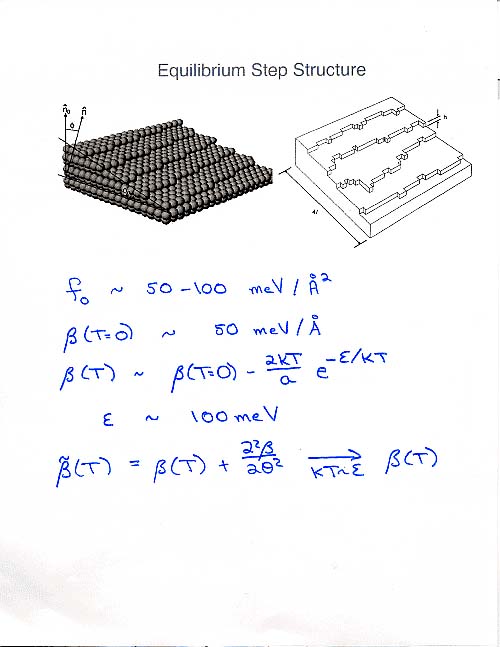 Equilibrium Step Structure
n̂₀ n̂
θ
h
f₀ ~ 50-100 meV/Å²
β(T=0) ~ 50 meV/Å
β(T) ~ β(T=0) - 2kT/a e^(-ε/kT)
ε ~ 100 meV
β̃(T) = β(T) + ∂²β/∂θ² → kT~ε β(T)